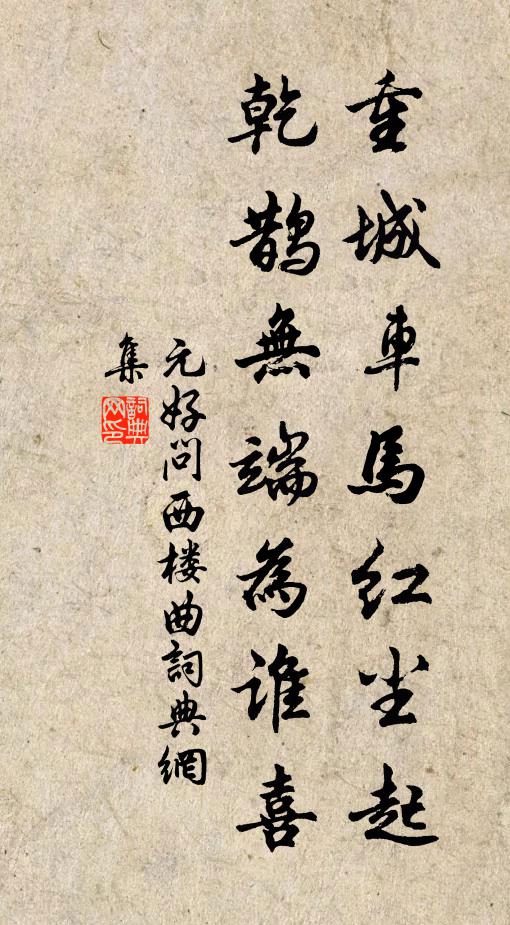 重城車馬红尘起
乾鹊無端為誰喜
元好问西楼曲詞典網
集
詞典網印